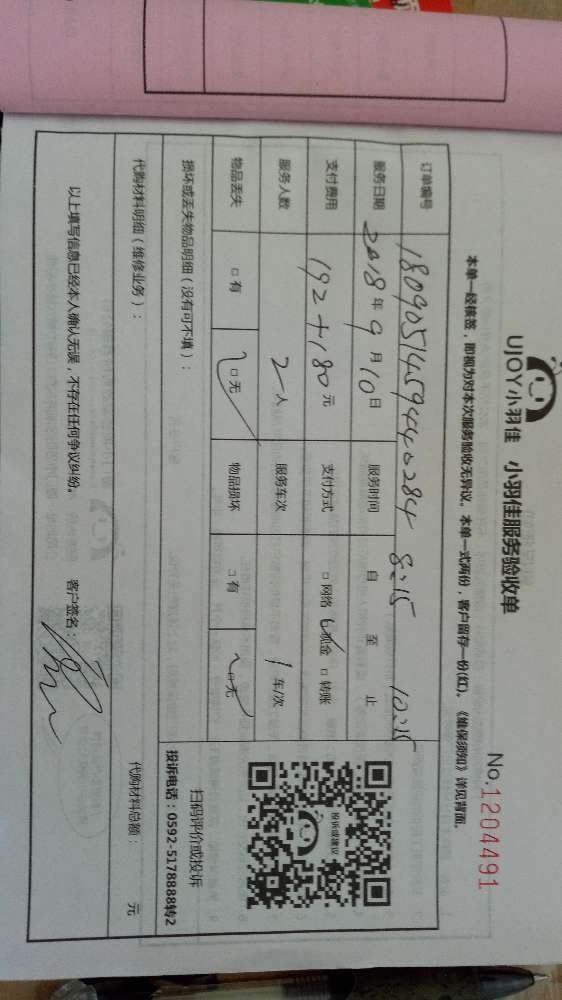 UJOY小羽佳 小羽佳服务验收单
No.1204491
本单一经核签，即视为对本次服务验收无异议。本单一式两份，客户留存一份(红)。《维保须知》详见背面。
订单编号 18090514594440284
服务日期 2018年9月10日 服务时间 8:15 自 至 10:15 止
支付费用 192+180元 支付方式 □网络 □现金 □转账
服务人数 2人 服务车次 1车/次
物品丢失 □有 □无 物品损坏 □有 □无
投诉或建议
扫码评价或投诉
投诉电话：0592-5178888转2
损坏或丢失物品明细（没有可不填）：
代购材料明细（维修业务）：
代购材料总额： 元
以上填写信息已经本人确认无误，不存在任何争议纠纷。 客户签名：